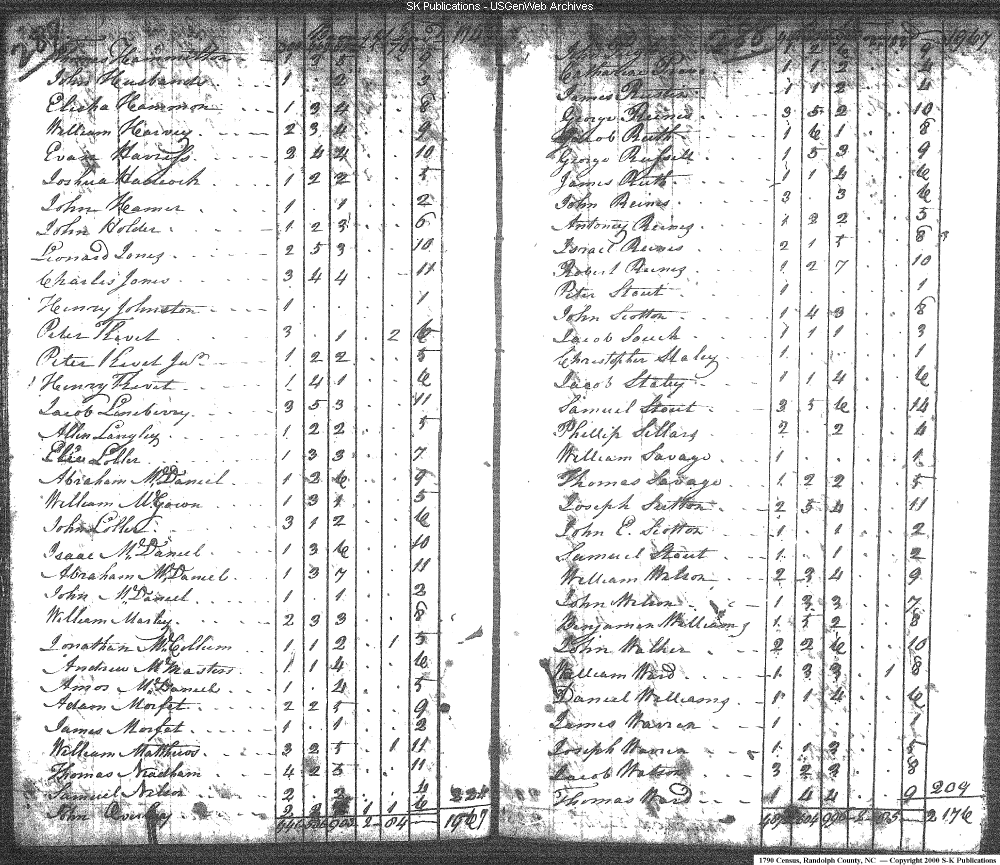 SK Publications - USGenWeb Archives
John Husbands 1 . 2 . . 3
Elisha Hammon 1 3 4 . . 8
William Harvey 2 3 4 . . 9
Evan Harriss 2 4 4 . . 10
Joshua Hadcock 1 2 2 . . 5
John Hamer 1 . 1 . . 2
John Holder 1 2 3 . . 6
Leonard Jones 2 5 3 . . 10
Charles Jones 3 4 4 . . 11
Henry Johnston 1 1
Peter 3 . 1 . 2 6
Peter Junr 1 2 2 5
Henry 1 4 1 . . 6
Jacob Lineberry 3 5 3 . . 11
Allen Langley 1 2 2 . . 5
Loller 1 3 3 . . 7
Abraham McDaniel 1 2 6 . . 9
William McGown 1 3 1 . . 5
John Loller 3 1 2 . . 6
Isaac McDaniel 1 3 6 . . 10
Abraham McDaniel 1 3 7 . . 11
John McDaniel 1 . 1 . . 2
William Marley 2 3 3 . . 8
Jonathan McCollum 1 1 2 . 1 5
Andrew McMasters 1 1 4 . . 6
Amos McDaniel 1 . 4 . . 5
Adam Morfet 2 2 5 . . 9
James Morfet 1 . 1 . . 2
William Matthews 3 2 5 . 1 11
Thomas Needham 4 2 5 . . 11
Samuel Nelson 2 . 2 . . 4 224
John 2 2 1 1 6
1967
288 1967
1 1 2 . . 4
James 1 1 2 . . 4
George Reines 3 5 2 . . 10
Jacob Ruth 1 6 1 . . 8
George Russell 1 5 3 . . 9
James Ruth 1 1 4 . . 6
John Reines 3 . 3 . . 6
Antoney Reines 1 2 2 . . 5
Israel Reines 2 1 5 . . 8
Robert Reines 1 2 7 . . 10
Peter Stout 1 . . . . 1
John Scotton 1 4 3 . . 8
Jacob Souch 1 1 1 . . 3
Christopher Staley 1 . . . . 1
Jacob Staley 1 1 4 . . 6
Samuel Stout 3 5 6 . . 14
Phillip Sillars 2 . 2 . . 4
William Savage 1 . . . . 1
Thomas Savage 1 2 2 . . 5
Joseph Sutton 2 5 4 . . 11
John E. Scotton 1 . 1 . . 2
Samuel Stout 1 . 1 . . 2
William Watson 2 3 4 . . 9
John Wilson 1 3 3 . . 7
Benjamin Williams 1 5 2 . . 8
John Walker 2 2 6 . . 10
William Ward 1 3 3 . 1 8
Daniel Williams 1 1 4 . . 6
James Warren 1 . . . . 1
Joseph Warren 1 1 3 . . 5
Jacob Watson 3 2 3 . . 8
Thomas Ward 1 4 4 . . 9 209
2176
1790 Census, Randolph County, NC — Copyright 2000 S-K Publications